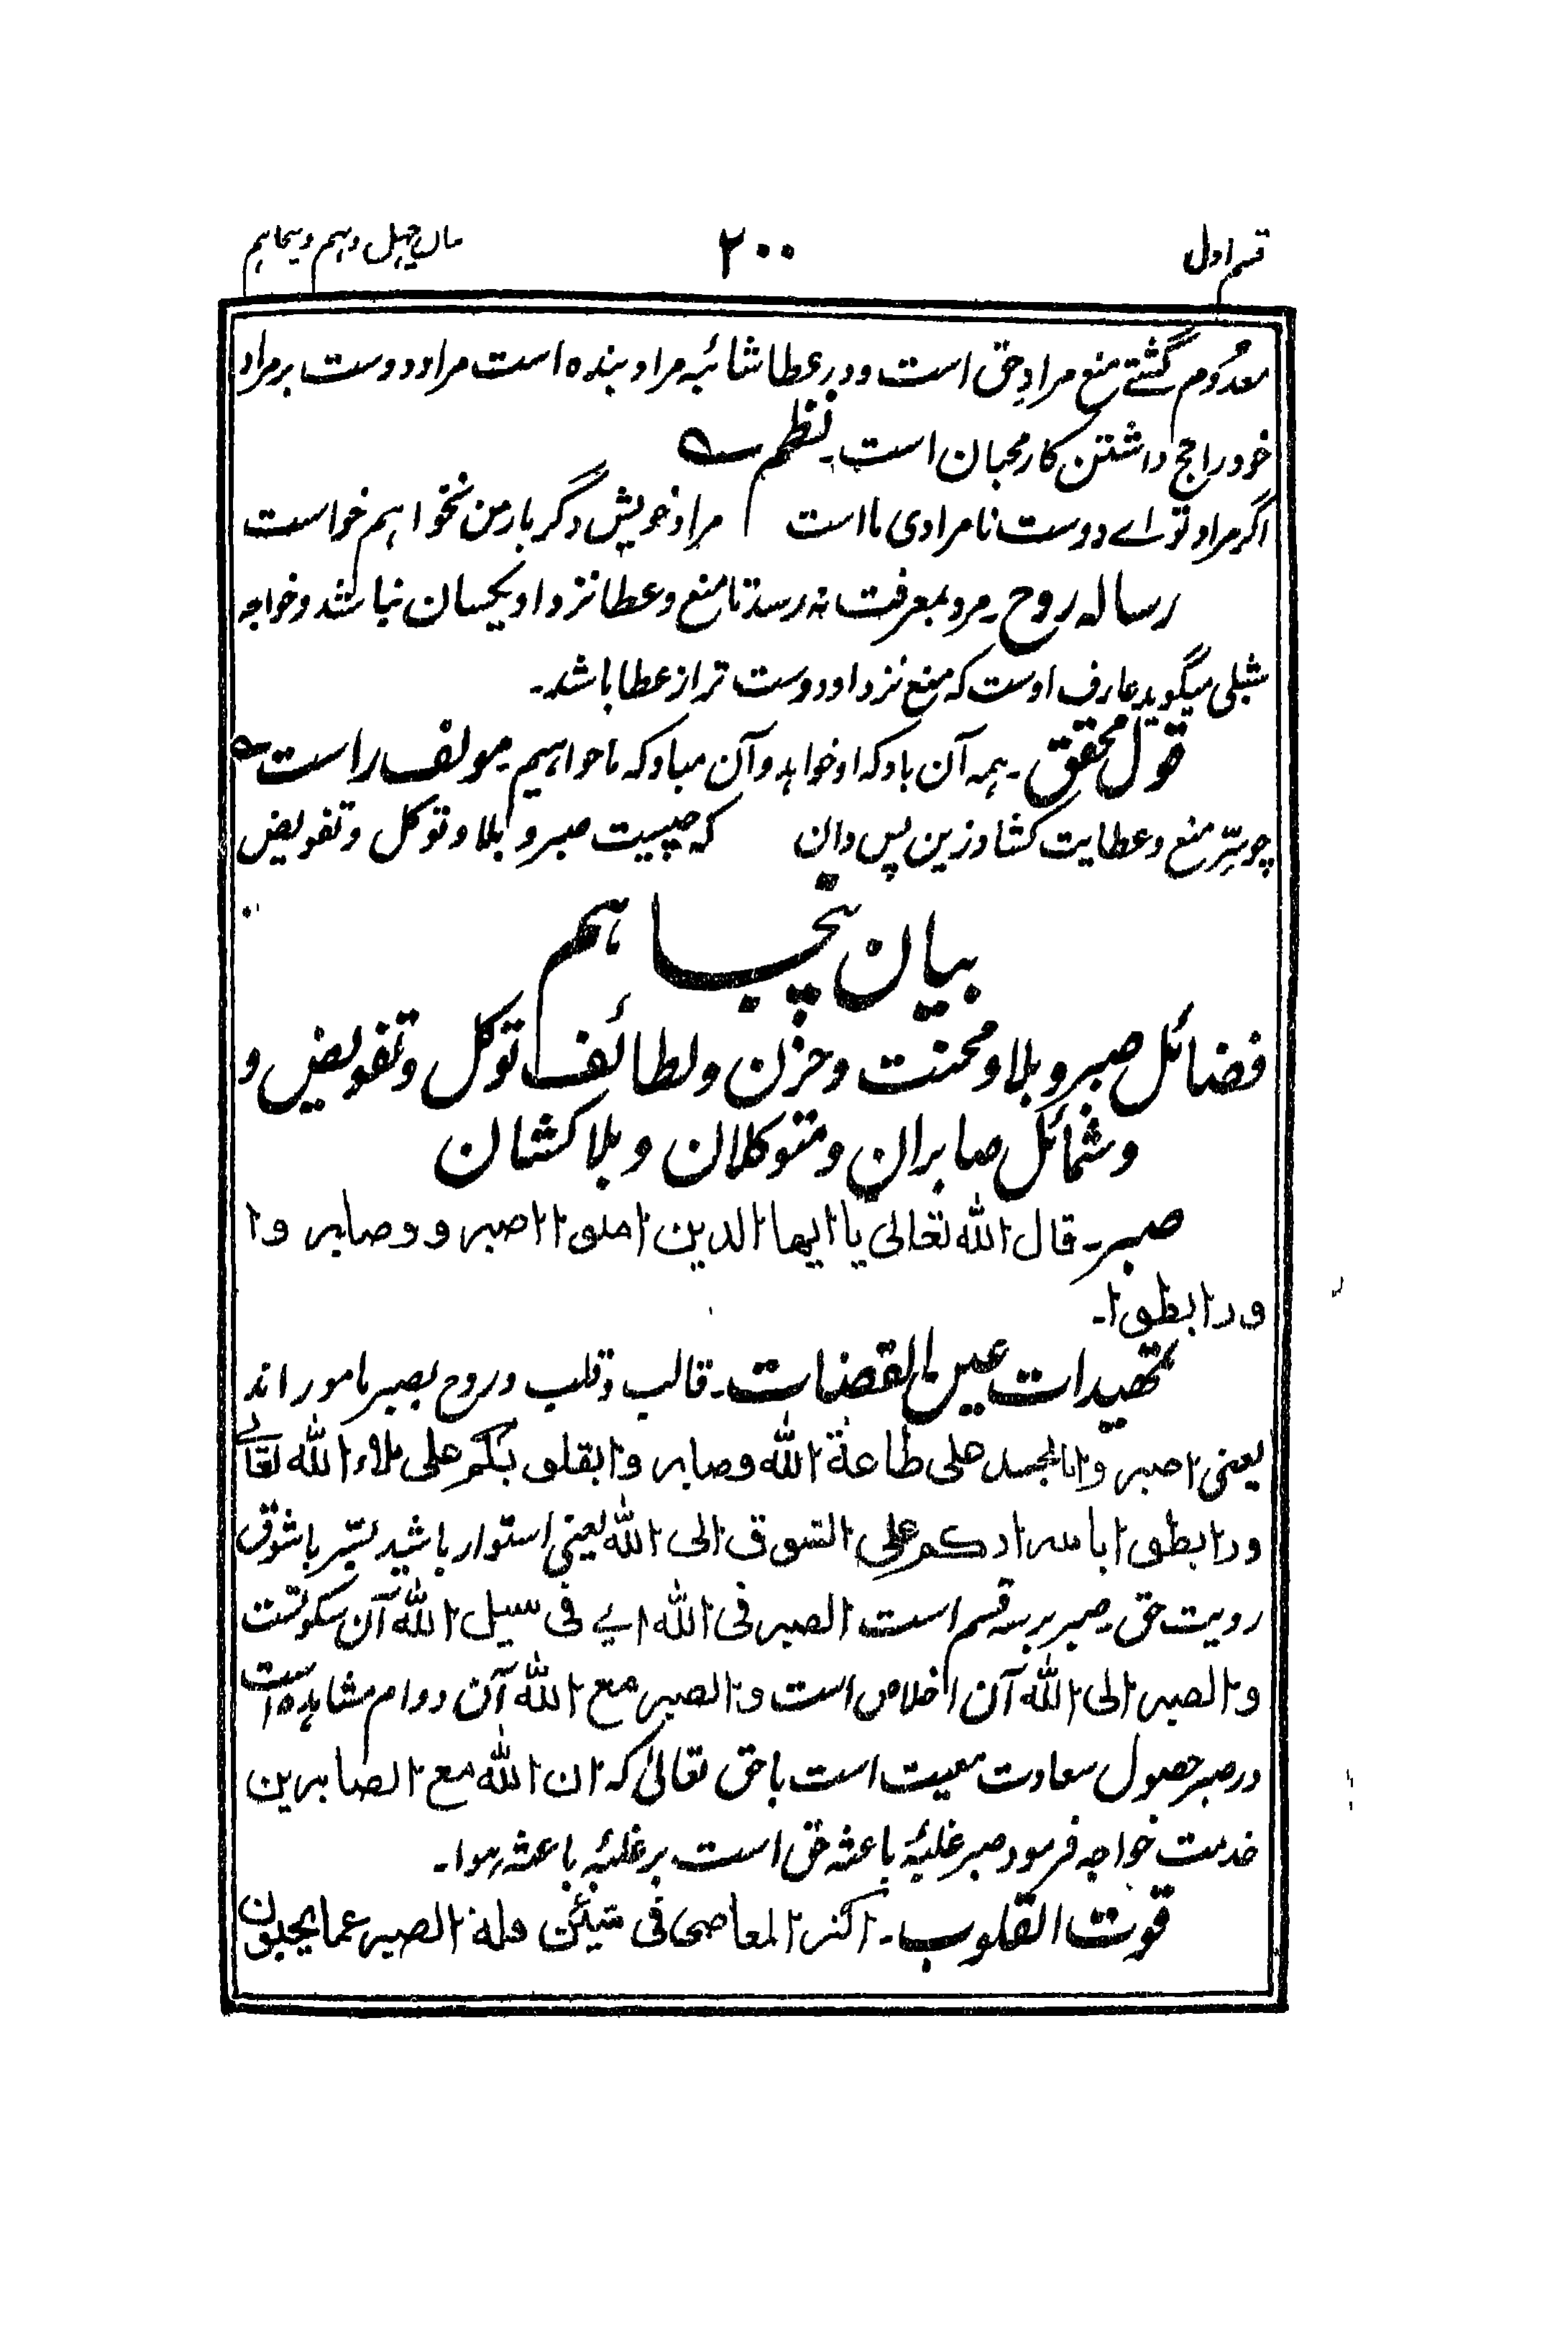 قسم اول
۲۰۰
بیان چہل و نہم و پنجاہم
معدُوم گشتے منع مرادِ حق است و در عطا شائبہ مراد بندہ است مراد دوست بر مراد
خود راجح داشتن کار محبان است۔ نظم
اگر مراد تو اے دوست نامرادی ما است
مراد خویش دگر بار من نخواہم خواست
رسالہ روح۔ مرد بمعرفت نہ رسد تا منع و عطا نزد او یکسان نباشد و خواجہ
شبلی میگوید عارف اوست کہ منع نزد او دوست تر از عطا باشد۔
قول محقق۔ ہمہ آن باد کہ او خواہد و آن مباد کہ ما خواہیم۔ مولف راست
چو سِّر منع و عطایت کشاد زین پس دان
کہ چیست صبر و بلا و توکل و تفویض
بیان پنجاہم
فضائل صبر و بلا و محنت و حزن و لطائف توکل و تفویض و
و شمائل صابران و متوکلان و بلاکشان
صبر۔ قال اللہ تعالی یا ایہا الذین امنوا اصبروا وصابروا
ورابطوا۔
تمہیدات عین القضات۔ قالب و قلب و روح بصبر مامور اند
یعنی اصبروا بالجسد علی طاعۃ اللہ وصابروا بقلوبکم علی بلاء اللہ تعالے
ورابطوا باسرارکم علی الشوق الی اللہ یعنی استوار باشید بسّر با شوق
رویت حق۔ صبر بر سہ قسم است الصبر فی اللہ اے فی سبیل اللہ آن سکونت
والصبر الی اللہ آن اخلاص است والصبر مع اللہ آن دوام مشاہدہ است
در صبر حصول سعادت معیت است با حق تعالیٰ کہ ان اللہ مع الصابرین
خدمت خواجہ فرمود صبر غلبۂ باعثہ حق است بر غلبۂ باعثہ ہوا۔
قوت القلوب۔ اکثر المعاصی فی شیئین قلۃ الصبر عما یحبون